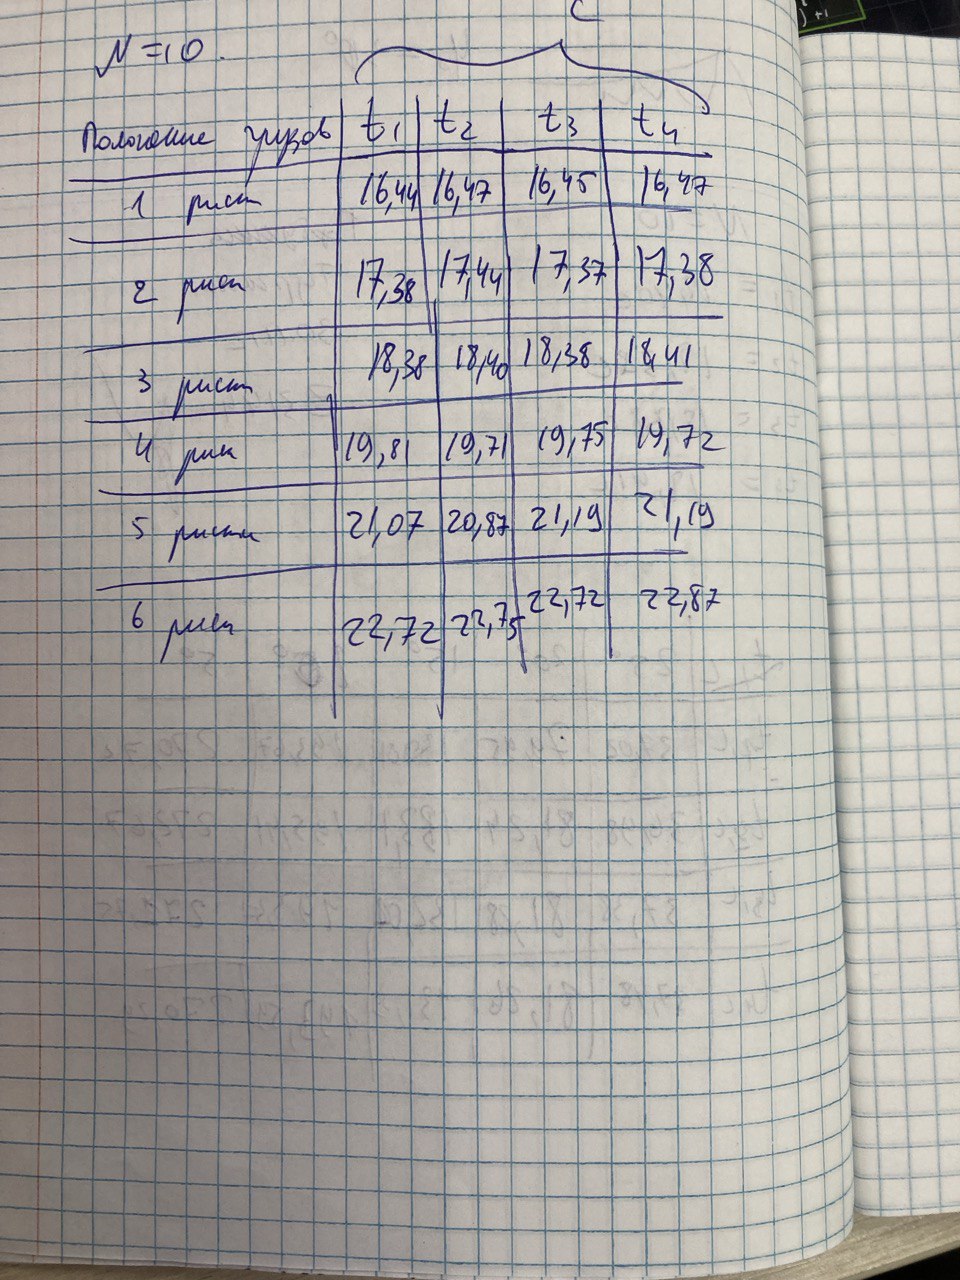 ) +1
c
N = 10.
Положение грузов t1 t2 t3 t4
1 риска 16,44 16,47 16,45 16,47
2 риски 17,38 17,44 17,37 17,38
3 риски 18,38 18,40 18,38 18,41
4 риски 19,81 19,71 19,75 19,72
5 риски 21,07 20,87 21,19 21,19
6 риски 22,72 22,75 22,72 22,87